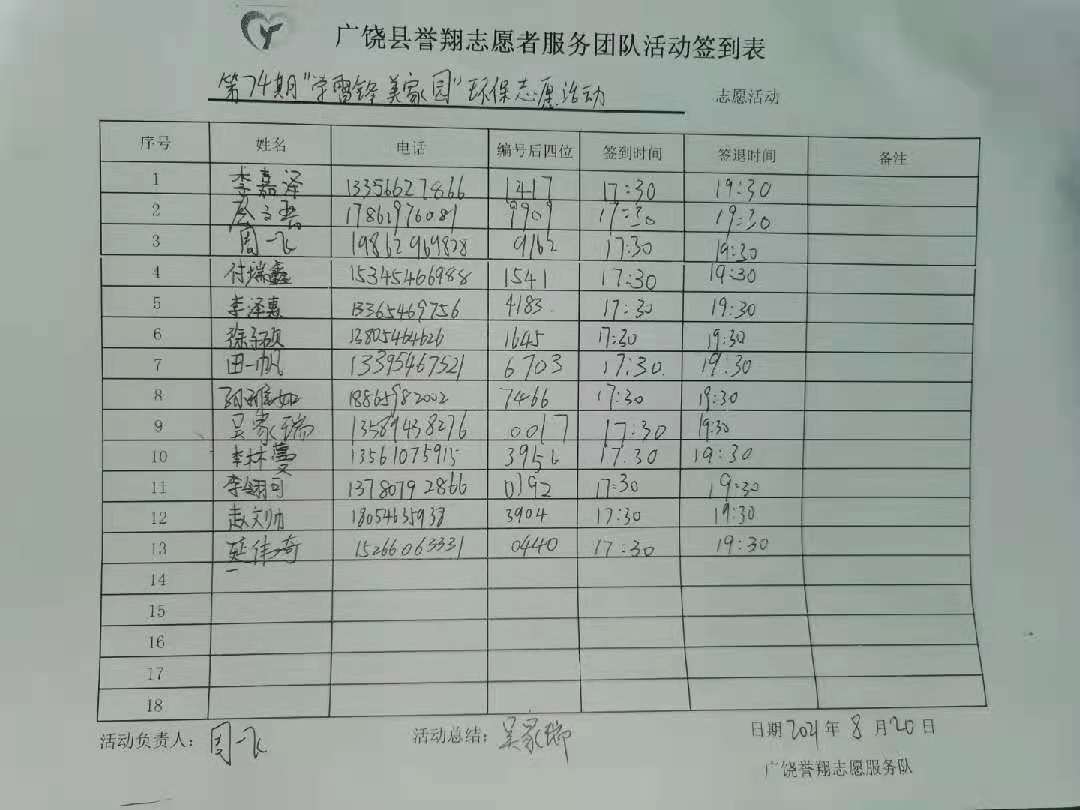 广饶县誉翔志愿者服务团队活动签到表
第74期"学雷锋 美家园"环保志愿活动 志愿活动
序号 姓名 电话 编号后四位 签到时间 签退时间 备注
1 李嘉泽 13356627866 1417 17:30 19:30
2 17862976081 9909 17:30 19:30
3 周一飞 19862969828 9162 17:30 19:30
4 付瑞鑫 15345466988 1541 17:30 19:30
5 李泽惠 13365469756 4183 17:30 19:30
6 徐子硕 13805464626 1645 17:30 19:30
7 田一帆 13395467521 6703 17:30 19:30
8 孙雅如 18865982002 7466 17:30 19:30
9 吴家瑞 13589438276 0017 17:30 19:30
10 李林蔓 13561075915 3956 17:30 19:30
11 李翎可 13780792866 0192 17:30 19:30
12 赵文帅 18054635938 3904 17:30 19:30
13 延伟琦 15266063331 0440 17:30 19:30
14
15
16
17
18
活动负责人: 周一飞 活动总结: 吴家瑞 日期2021年8月20日
广饶誉翔志愿服务队